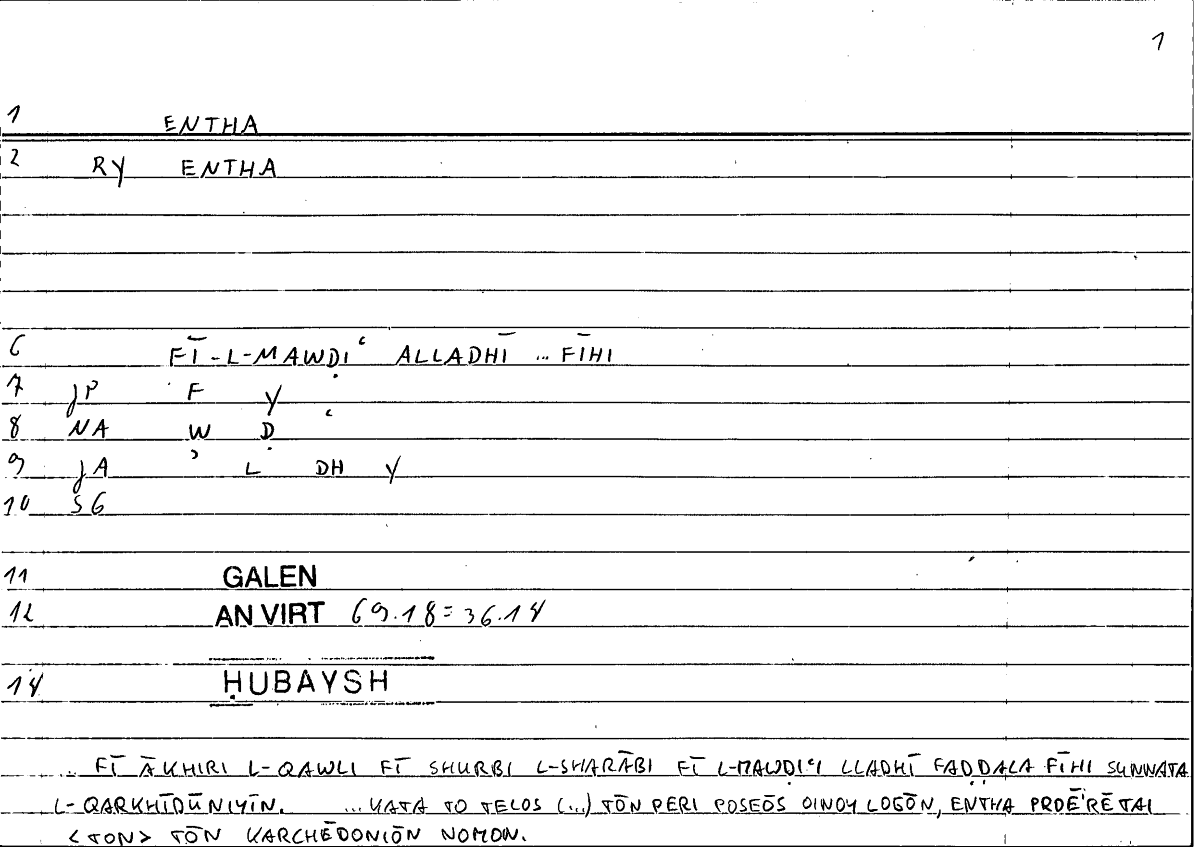 1
1 ENTHA
2 RY ENTHA
6 FĪ-L-MAWḌIʿ ALLADHĪ ... FĪHI
7 JP F Y
8 NA W Ḍ ʿ
9 JA ʾ L DH Y
10 SG
11 GALEN
12 AN VIRT 69.18=36.14
14 ḤUBAYSH
... FĪ ĀKHIRI L-QAWLI FĪ SHURBI L-SHARĀBI FĪ L-MAWḌIʿI LLADHĪ FAḌḌALA FĪHI SUNNATA
L-QARKHĪDŪNIYĪN. ...KATA TO TELOS (...) TŌN PERI POSEŌS OINOY LOGŌN, ENTHA PROĒ'RĒTAI
<TON> TŌN KARCHĒDONIŌN NOMON.